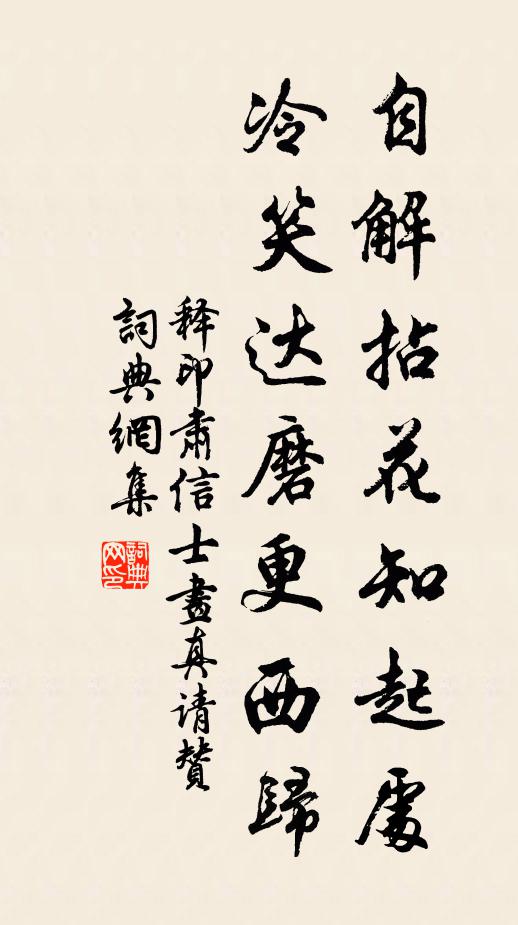 自解拈花知起處
冷笑达磨更西歸
释印肃信士畫真请贊
詞典網集
詞典网印